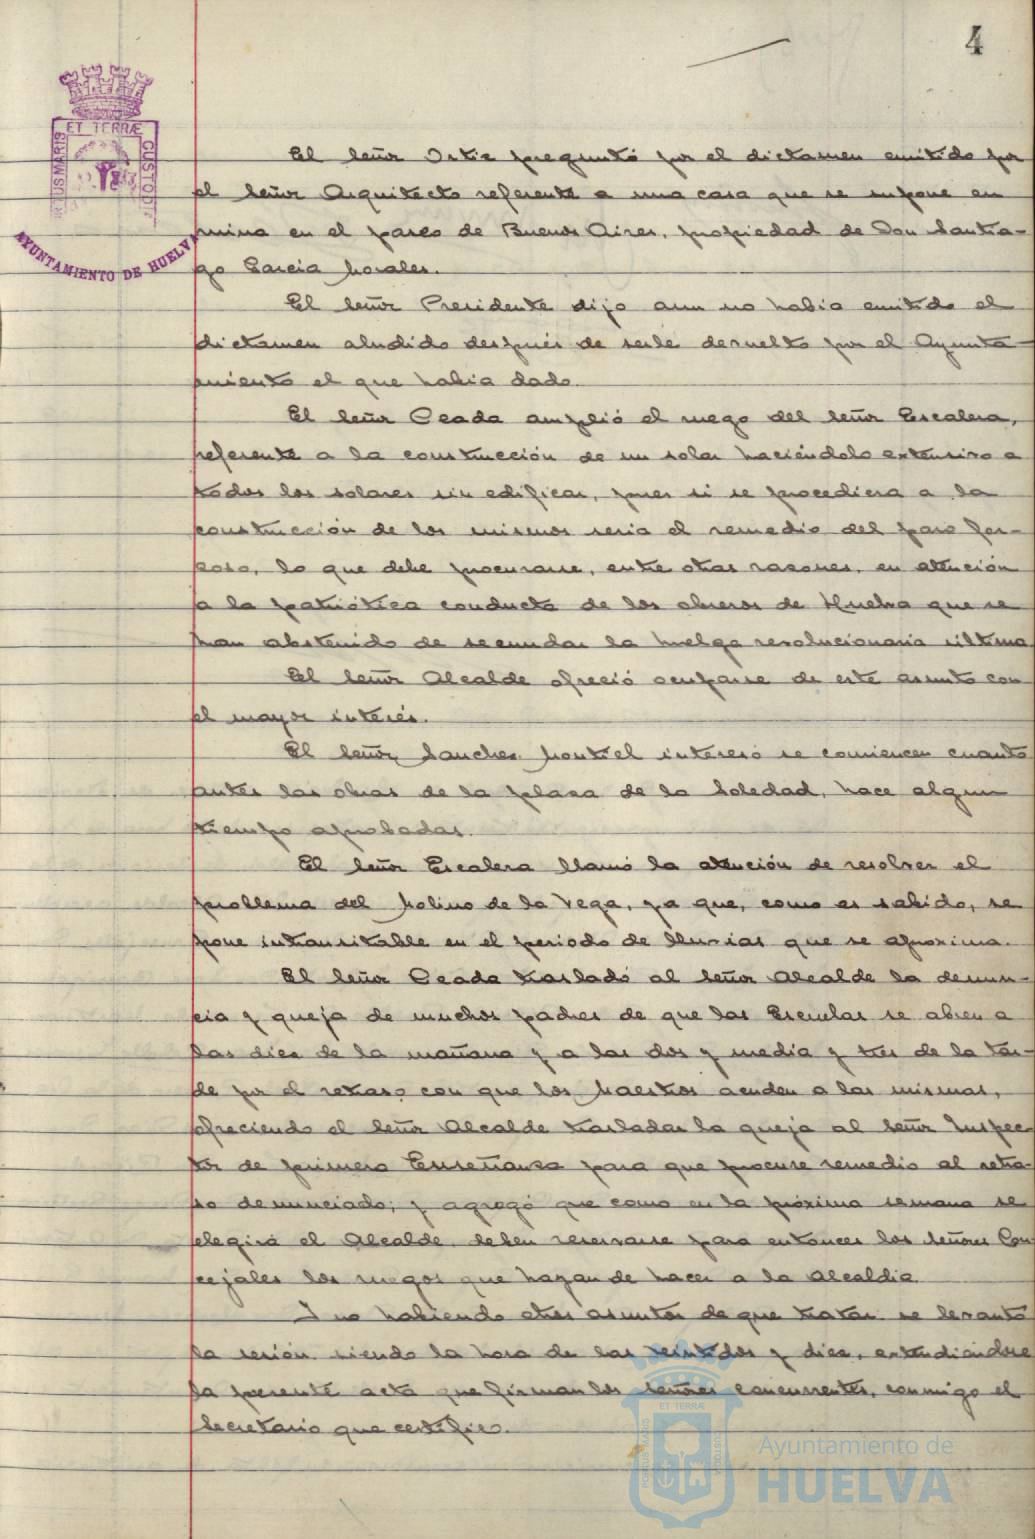 4
ET TERRÆ
CUSTODIA
AYUNTAMIENTO DE HUELVA
El señor Ortiz preguntó por el dictamen emitido por
el señor Arquitecto referente a una casa que se supone en
ruina en el paseo de Buenos Aires, propiedad de Don Santia-
go García Morales.
El señor Presidente dijo aun no habia emitido el
dictamen aludido después de serle devuelto por el Ayunta-
miento el que habia dado.
El señor Ceada amplió el ruego del señor Escalera,
referente a la construcción de un solar haciéndolo extensivo a
todos los solares sin edificar, pues si se procediera a la
construcción de los mismos seria el remedio del paro for-
zoso, lo que debe procurarse, entre otras razones, en atención
a la patriótica conducta de los obreros de Huelva que se
han abstenido de secundar la huelga revolucionaria última
El señor Alcalde ofreció ocuparse de este asunto con
el mayor interés.
El señor Sanchez Montiel interesó se comiencen cuanto
antes las obras de la plaza de la Soledad, hace algun
tiempo aprobadas.
El señor Escalera llamó la atención de resolver el
problema del Molino de la Vega, ya que, como es sabido, se
pone intransitable en el periodo de lluvias que se aproxima.
El señor Ceada trasladó al señor Alcalde la denun-
cia y queja de muchos padres de que las Escuelas se abren a
las diez de la mañana y a las dos y media y tres de la tar-
de por el retraso con que los Maestros acuden a las mismas,
ofreciendo el señor Alcalde trasladar la queja al señor Inspec
tor de primera Enseñanza para que procure remedio al retra-
so denunciado; y agregó que como en la próxima semana se
elegirá el Alcalde, deben reservarse para entonces los señores Con-
cejales los ruegos que hayan de hacer a la Alcaldia
Y no habiendo otros asuntos de que tratar se levantó
la sesión siendo la hora de las veintidos y diez, extendiéndose
la presente acta que firman los señores concurrentes, conmigo el
Secretario que certifico.
ET TERRÆ
PORTUS MARIS
CUSTODIA
Ayuntamiento de
HUELVA